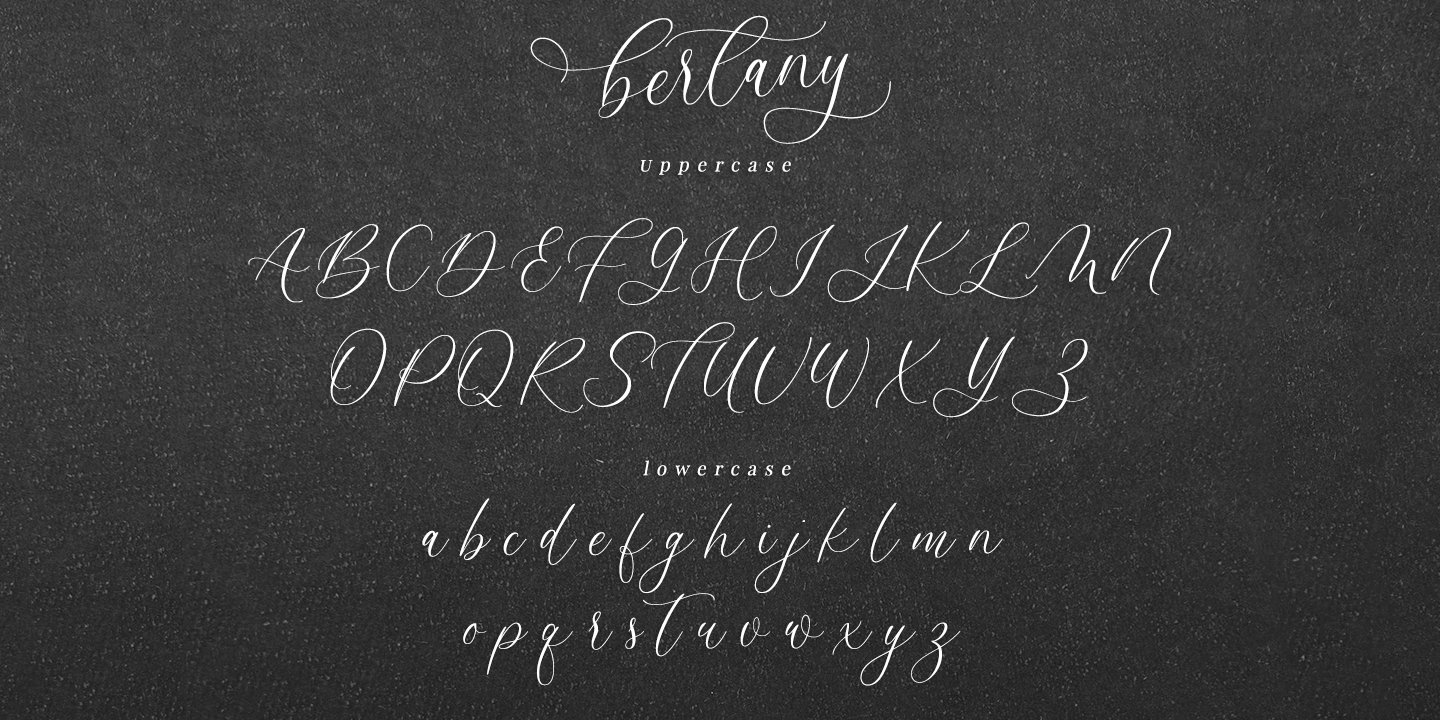 berlany
Uppercase
ABCDEFGHIJKLMN
OPQRSTUVWXYZ
lowercase
abcdefghijklmn
opqrstuvwxyz